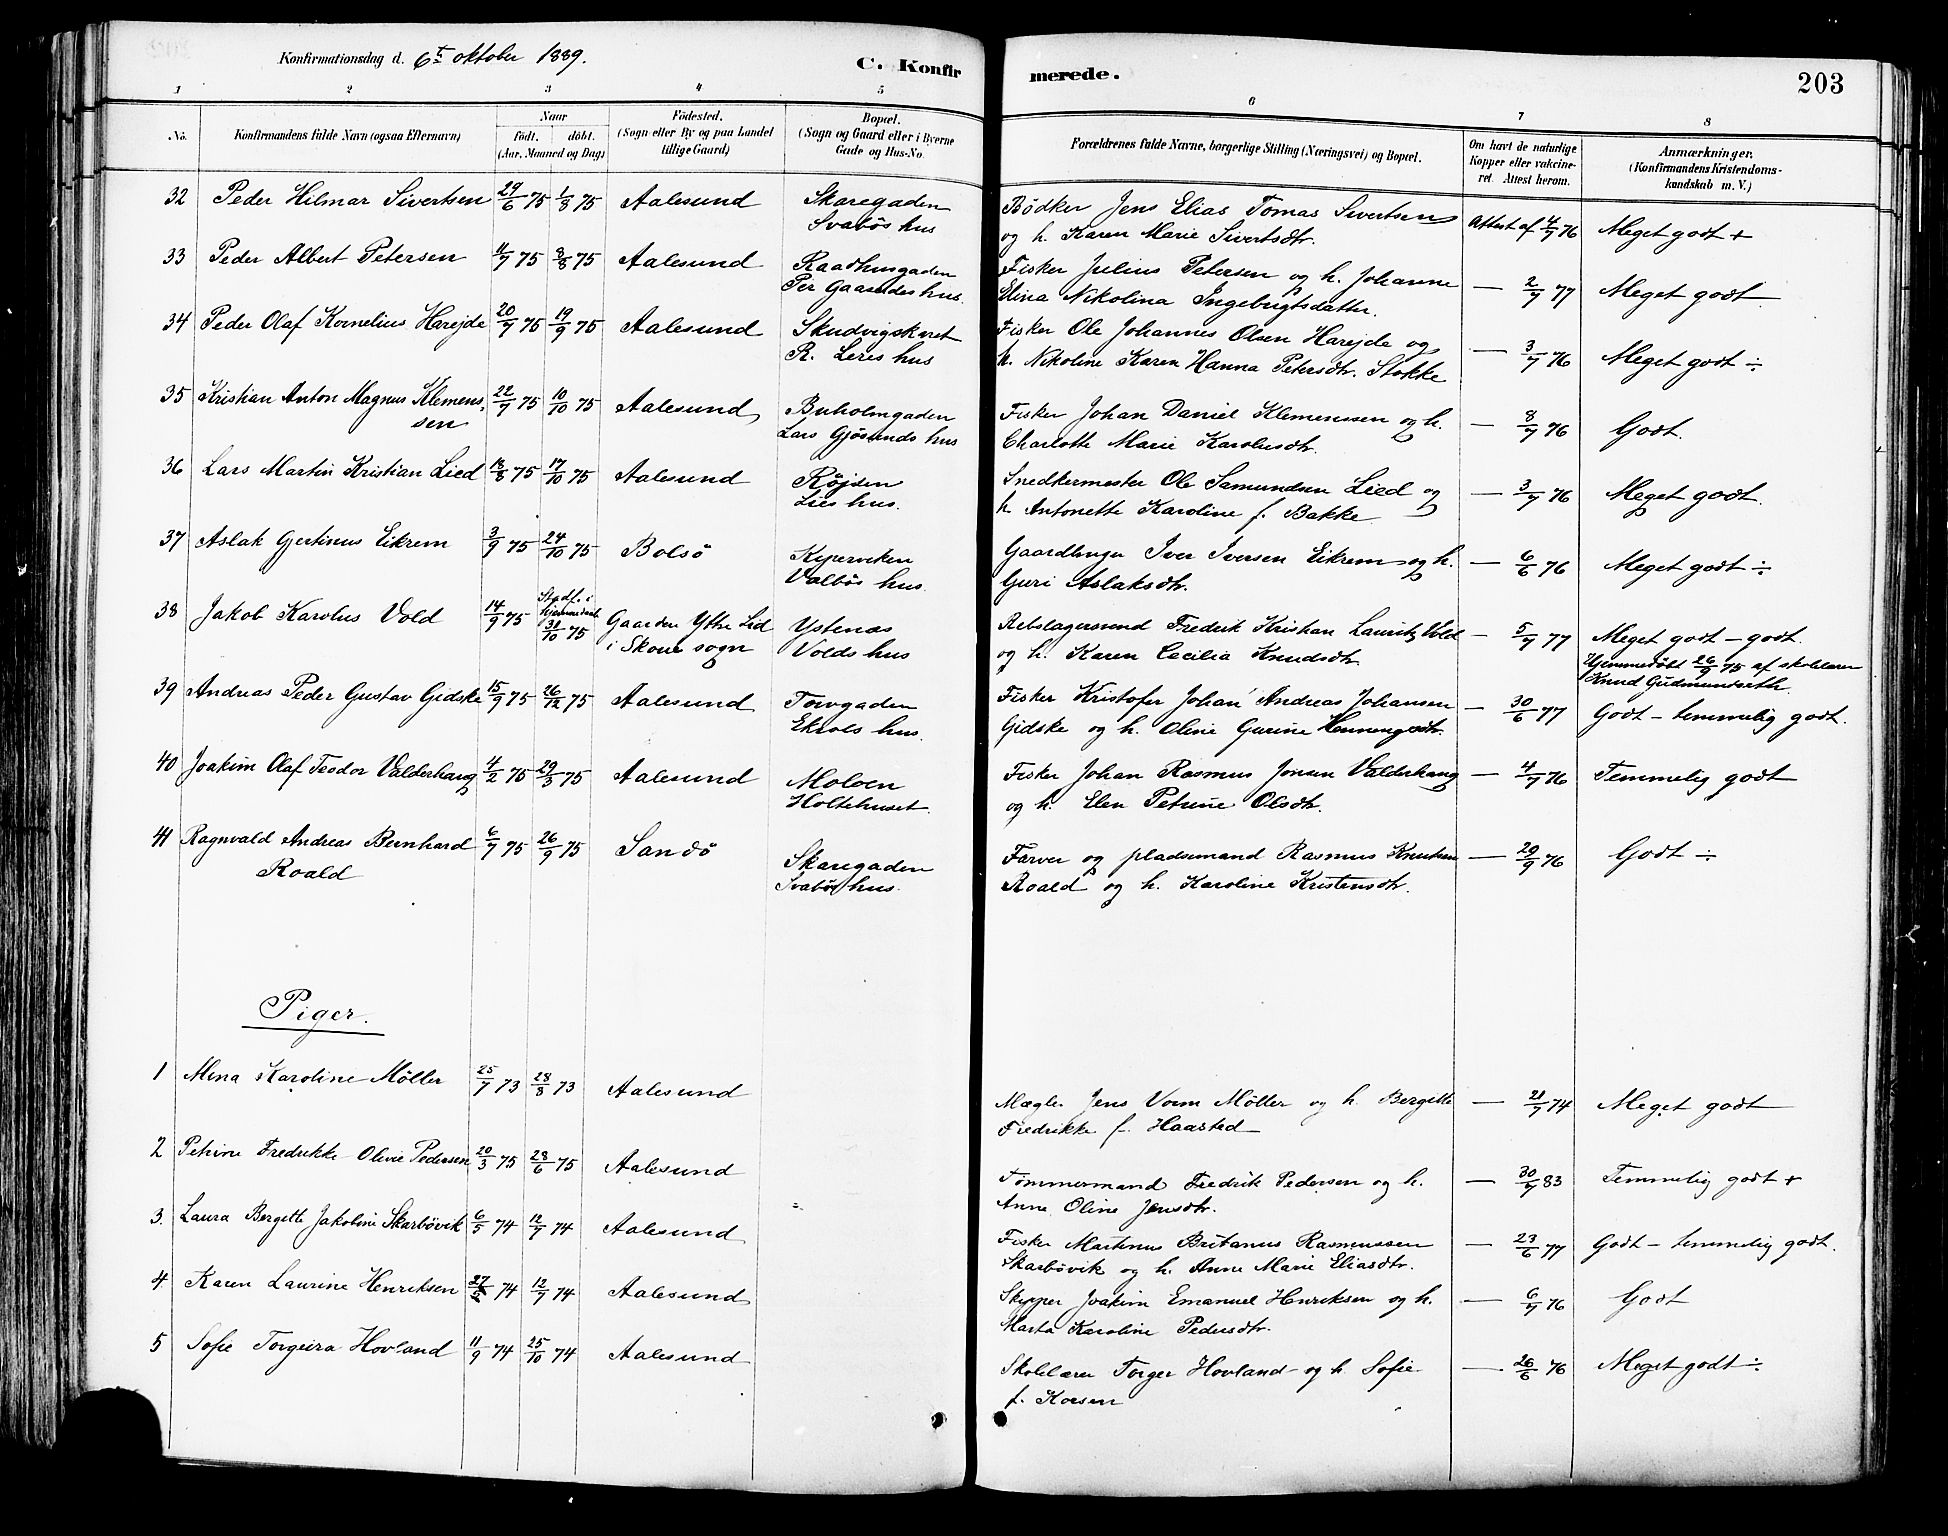 Konfirmationsdag d. 6te oktober 1889.
C. Konfirmerede.
203
1 2 3 4 5 6 7 8
No.
Konfirmandens fulde Navn (ogsaa Efternavn)
Naar
födt. döbt.
(Aar, Maaned og Dag)
Födested.
(Sogn eller By og paa Landet
tillige Gaard)
Bopæl.
(Sogn og Gaard eller i Byerne
Gade og Hus-No.
Forældrenes fulde Navne, borgerlige Stilling (Næringsvei) og Bopæl.
Om havt de naturlige
Kopper eller vakcine-
ret. Attest herom.
Anmærkninger.
(Konfirmandens Kristendoms-
kundskab m. V.)
32 Peder Hilmar Sivertsen 29/6 75 1/8 75 Aalesund Skaregaden
Svabös hus
Bödker Jens Elias Tomas Sivertsen
og h. Karen Marie Sivertsdtr.
Attest af 4/7 76 Meget godt +
33 Peder Albert Petersen 11/7 75 8/8 75 Aalesund Raadhusgaden
Per Gaasedes hus.
Fisker Julius Petersen og h. Johanne
Elina Nikolina Ingebrigtsdatter.
— 2/7 77 Meget godt
34 Peder Olaf Kornelius Harejde 20/7 75 19/9 75 Aalesund Skudvigskaret
R. Leres hus
Fisker Ole Johannes Olsen Harejde og
h. Nikoline Karen Hanna Petersdtr. Stokke
— 3/7 76 Meget godt ÷
35 Kristian Anton Magnus Klemens-
sen 22/7 75 10/10 75 Aalesund Buholmgaden
Lars Gjösunds hus
Fisker Johan Daniel Klemenssen og h.
Charlotte Marie Karolusdtr.
— 8/7 76 Godt.
36 Lars Martin Kristian Lied 18/8 75 17/10 75 Aalesund Røjsen
Lies hus.
Snedkermester Ole Samundsen Lied og
h. Antonette Karoline f. Bakke
— 3/7 76 Meget godt.
37 Aslak Gjertinus Eikrem 3/9 75 24/10 75 Bolsö Kiperviken
Valbös hus
Gaardbruger Iver Iversen Eikrem og h.
Guri Aslaksdtr.
— 6/6 76 Meget godt ÷
38 Jakob Karolus Vold 14/9 75 Stadf. i
31/10 75 Gaarden Ytre Lid
i Skoue sogn
Ystenæs
Volds hus
Rebslagersvend Fredrik Kristian Lauritz Vold
og h. Karen Cecilia Knudsdtr
— 5/7 77 Meget godt – godt.
Hjemmedöbt 26/9 75 af skolelærer
Knud Gudmundseth.
39 Andreas Peder Gustav Gidske 15/9 75 26/12 75 Aalesund Torvgaden
Ekrols hus.
Fisker Kristofer Johan Andreas Johansen
Gidske og h. Oline Gurine Henningsdtr.
— 30/6 77 Godt – temmelig godt.
40 Joakim Olaf Teodor Valderhaug 4/2 75 29/3 75 Aalesund Moloen
Holtehuset.
Fisker Johan Rasmus Jonsen Valderhaug
og h. Elen Petrine Olsdtr.
— 4/7 76 Temmelig godt
41 Ragnvald Andreas Bernhard
Roald 6/7 75 26/9 75 Sandö Skaregaden
Svabös hus.
Farver og pladsemand Rasmus Knutsen
Roald og h. Karoline Kristensdtr.
— 20/9 76 Godt ÷
Piger.
1 Mina Karoline Möller 25/7 73 28/8 73 Aalesund
Mægler Jens Worm Möller og h. Bergitte
Fredrikke f. Haasted
— 21/7 74 Meget godt
2 Petrine Fredrikke Olivie Pedersen 20/3 75 28/6 75 Aalesund
Tømmermand Fredrik Pedersen og h.
Anne Oline Jensdtr.
— 30/7 83 Temmelig godt +
3. Laura Bergitte Jakobine Skarbövik 6/5 74 12/7 74 Aalesund
Fisker Martinus Britanus Rasmussen
Skarbövik og h. Anne Marie Eliasdtr.
— 23/6 77 Godt – temmelig godt.
4 Karen Laurine Henriksen 27/5 74 12/7 74 Aalesund
Skipper Joakim Emanuel Henriksen og h.
Marta Karoline Pedersdtr.
— 6/7 76 Godt
5 Sofie Torgeira Hovland 11/9 74 25/10 74 Aalesund
Skolelærer Torger Hovland og h. Sofie
f. Korsen
— 26/6 76 Meget godt ÷